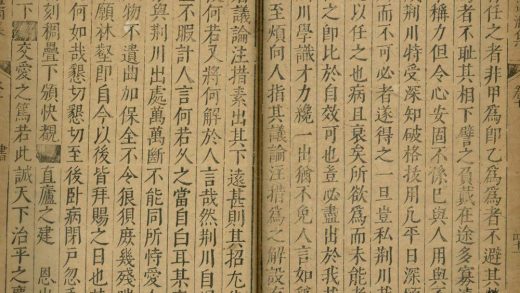 存任之者非甲爲卽乙爲爲者不避其
者不耻其相下譬之負戴在途多寡
稱力但令心安固不係已與人用與
荆川特受深知破格拔用凡平日深願
而不可必者遂得之一旦豈私荆川
以任之也病且衰矣所欲爲而未能
之卽比於自效可也意必盡出於我其
川學識才力纔一出猶不免人言如稱
至煩向人指其議論注措爲之解設在
者議論注措素出其下遠甚則其招尤
何若又將何解於人言哉然荆川自
不暇計人言何若久之當自白耳某
與荆川出處萬萬斷不能同所恃愛
物不遺曲加保全不令狼狽庶幾殘
願林壑卽自今以後皆拜賜之日也
何如哉懇切懇切至後卧病閉戸忽
刻稠疊下頒快覩 直廬之建 恩
下 交愛之篤若此誠天下治平之
書